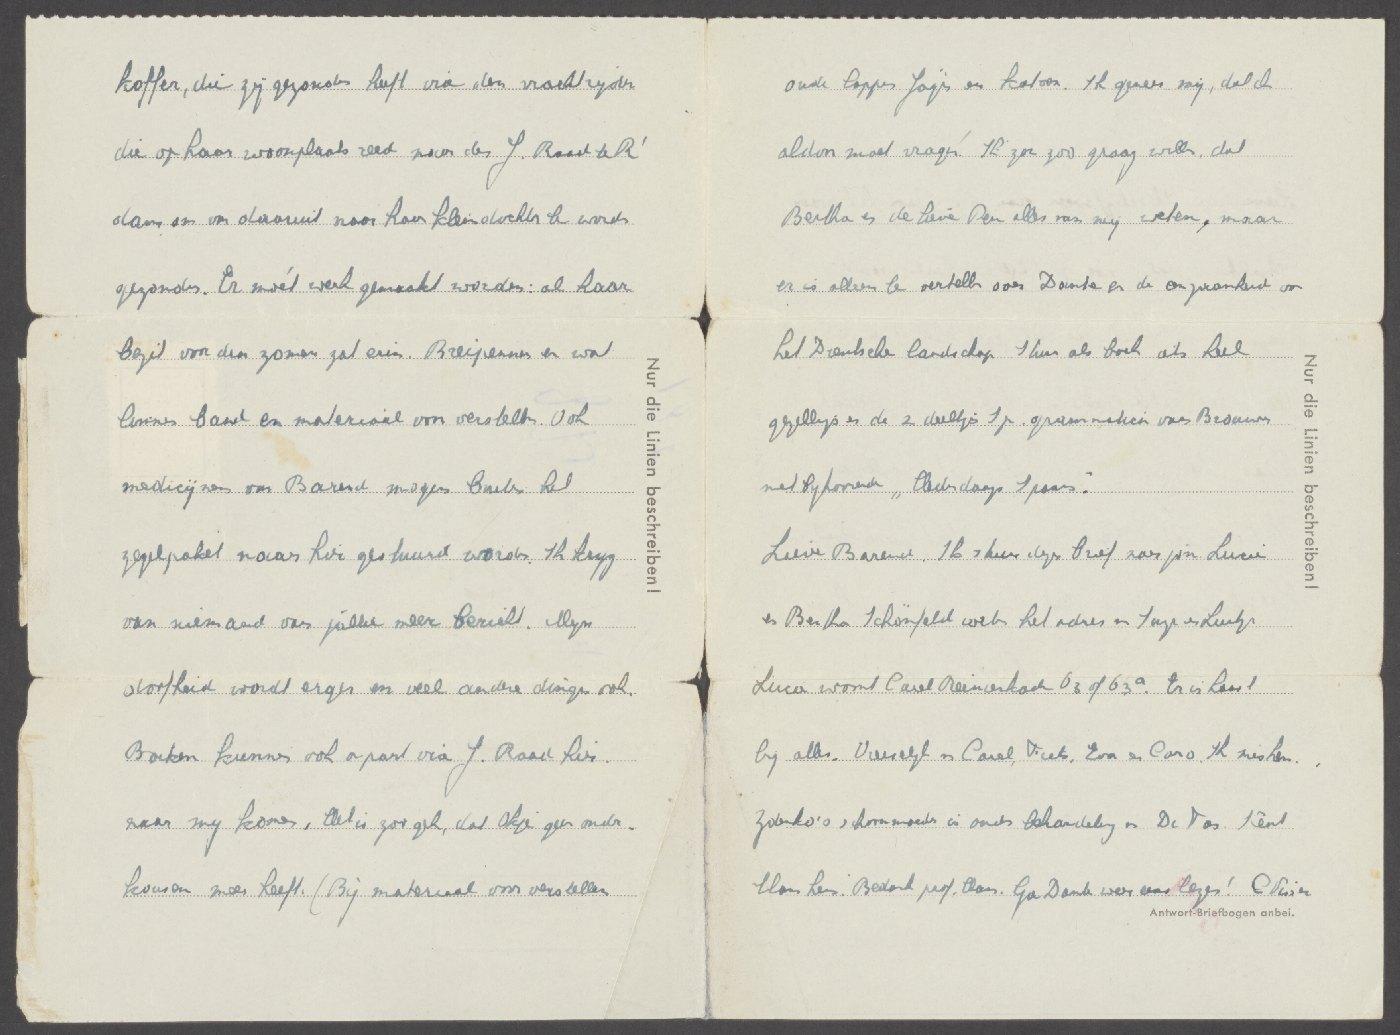 koffer, die zij gezonden heeft via den vrachtrijder
die op haar woonplaats reed naar den J. Raad te R'
dam om van daaruit naar haar kleindochter te worden
gezonden. Er moet werk gemaakt worden: al haar
bezit voor den zomer zat erin. Breipennen en wat
linnen band en materiaal voor verstellen. Ook
medicijnen van Barend mogen buiten het
zegelpaket naar hier gestuurd worden. Ik kryg
van niemand van jullie meer bericht. Myn
doofheid wordt erger en veel andere dingen ook.
Boeken kunnen ook apart via J. Raad hier
naar my komen. Het is zoo gek, dat Okje geen onder-
kousen meer heeft. (Bij materiaal voor verstellen
oude lappen Jäger en katoen. Ik geneer mij, dat ik
aldoor moet vragen! Ik zou zoo graag willen, dat
Bertha en de lieve Pen alles van my weten, maar
er is alleen te vertellen over Dante en de eenzaamheid van
het Drentsche landschap. Stuur als boek iets heel
gezelligs en de 2 deeltjes Sp. grammatica van Brouwer
met byhoorende „Alledaags Spaans".
Lieve Barend. Ik stuur dezen brief naar jou. Lucie
en Bertha Schönfeld weten het adres en Susje en Lientje
Luca woont Carel Reinierskade 63 of 63a. Er is haast
by alles. Vieruszyl en Carel, Frets, Eva en Caro. Ik mis hen.
Zdenko's schoonmoeder is onder behandeling en Dr Vos kent
Hans hier. Bedank prof. Hans. Ga Dante weer lezen! C Visser
Nur die Linien beschreiben!
Nur die Linien beschreiben!
Antwort-Briefbogen anbei.